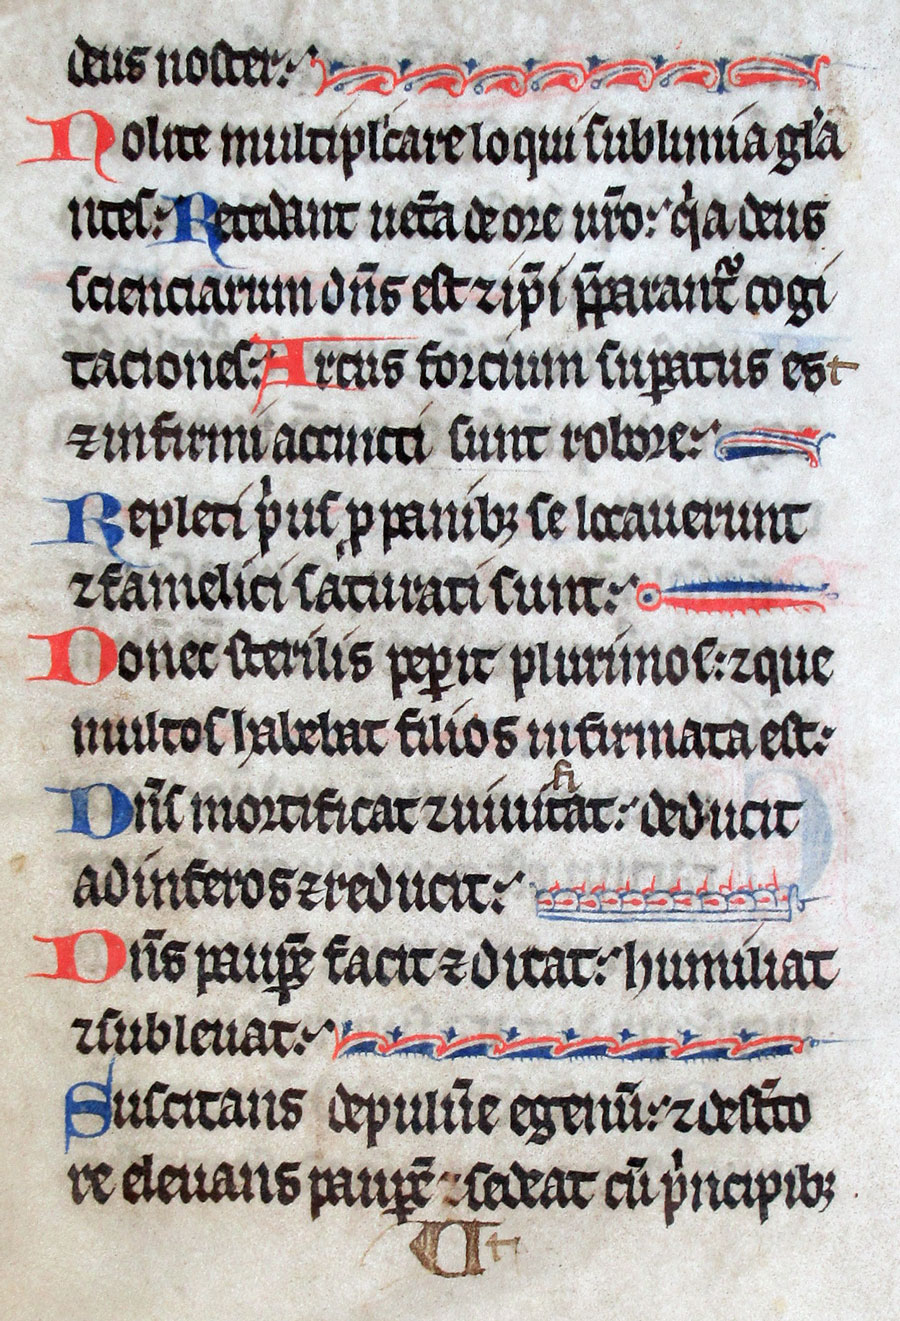 deus noster:
Nolite multipl'care loqui sublimia gl'a
ntes: Recedant uet̄a de ore ur̄o: q'a deus
scienciarum dn̄s est ⁊ ip̄i p̄parant᷑ cogi
taciones: Arcus forcium suꝑatus est
⁊ infirmi accincti sunt robore:
Repleti p'us ꝓ panibꝫ se locauerunt
⁊ famelici saturati sunt:
Donec sterilis peꝑit plurimos: ⁊ que
multos habebat filios infirmata est:
Dn̄s mortificat ⁊ uiuificat: deducit
ad inferos ⁊ reducit:
Dn̄s pauꝑē facit ⁊ ditat: humiliat
⁊ subleuat:
Suscitans de puluēe egenū: ⁊ de st̄co
re eleuans pauꝑē ⁊ sedeat cū p'ncipibꝫ